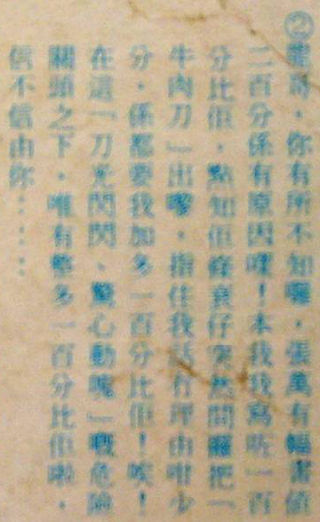 ②龍哥,你有所不知囉,張萬有幅畫值
二百分係有原因㗎!本我我寫咗一百
分比佢,點知佢條衰仔突然間囉把「
牛肉刀」出嚟,指住我話冇理由咁少
分,係都要我加多一百分比佢!唉!
在這「刀光閃閃、驚心動魄」嘅危險
關頭之下,唯有整多一百分比佢啦,
信不信由你……